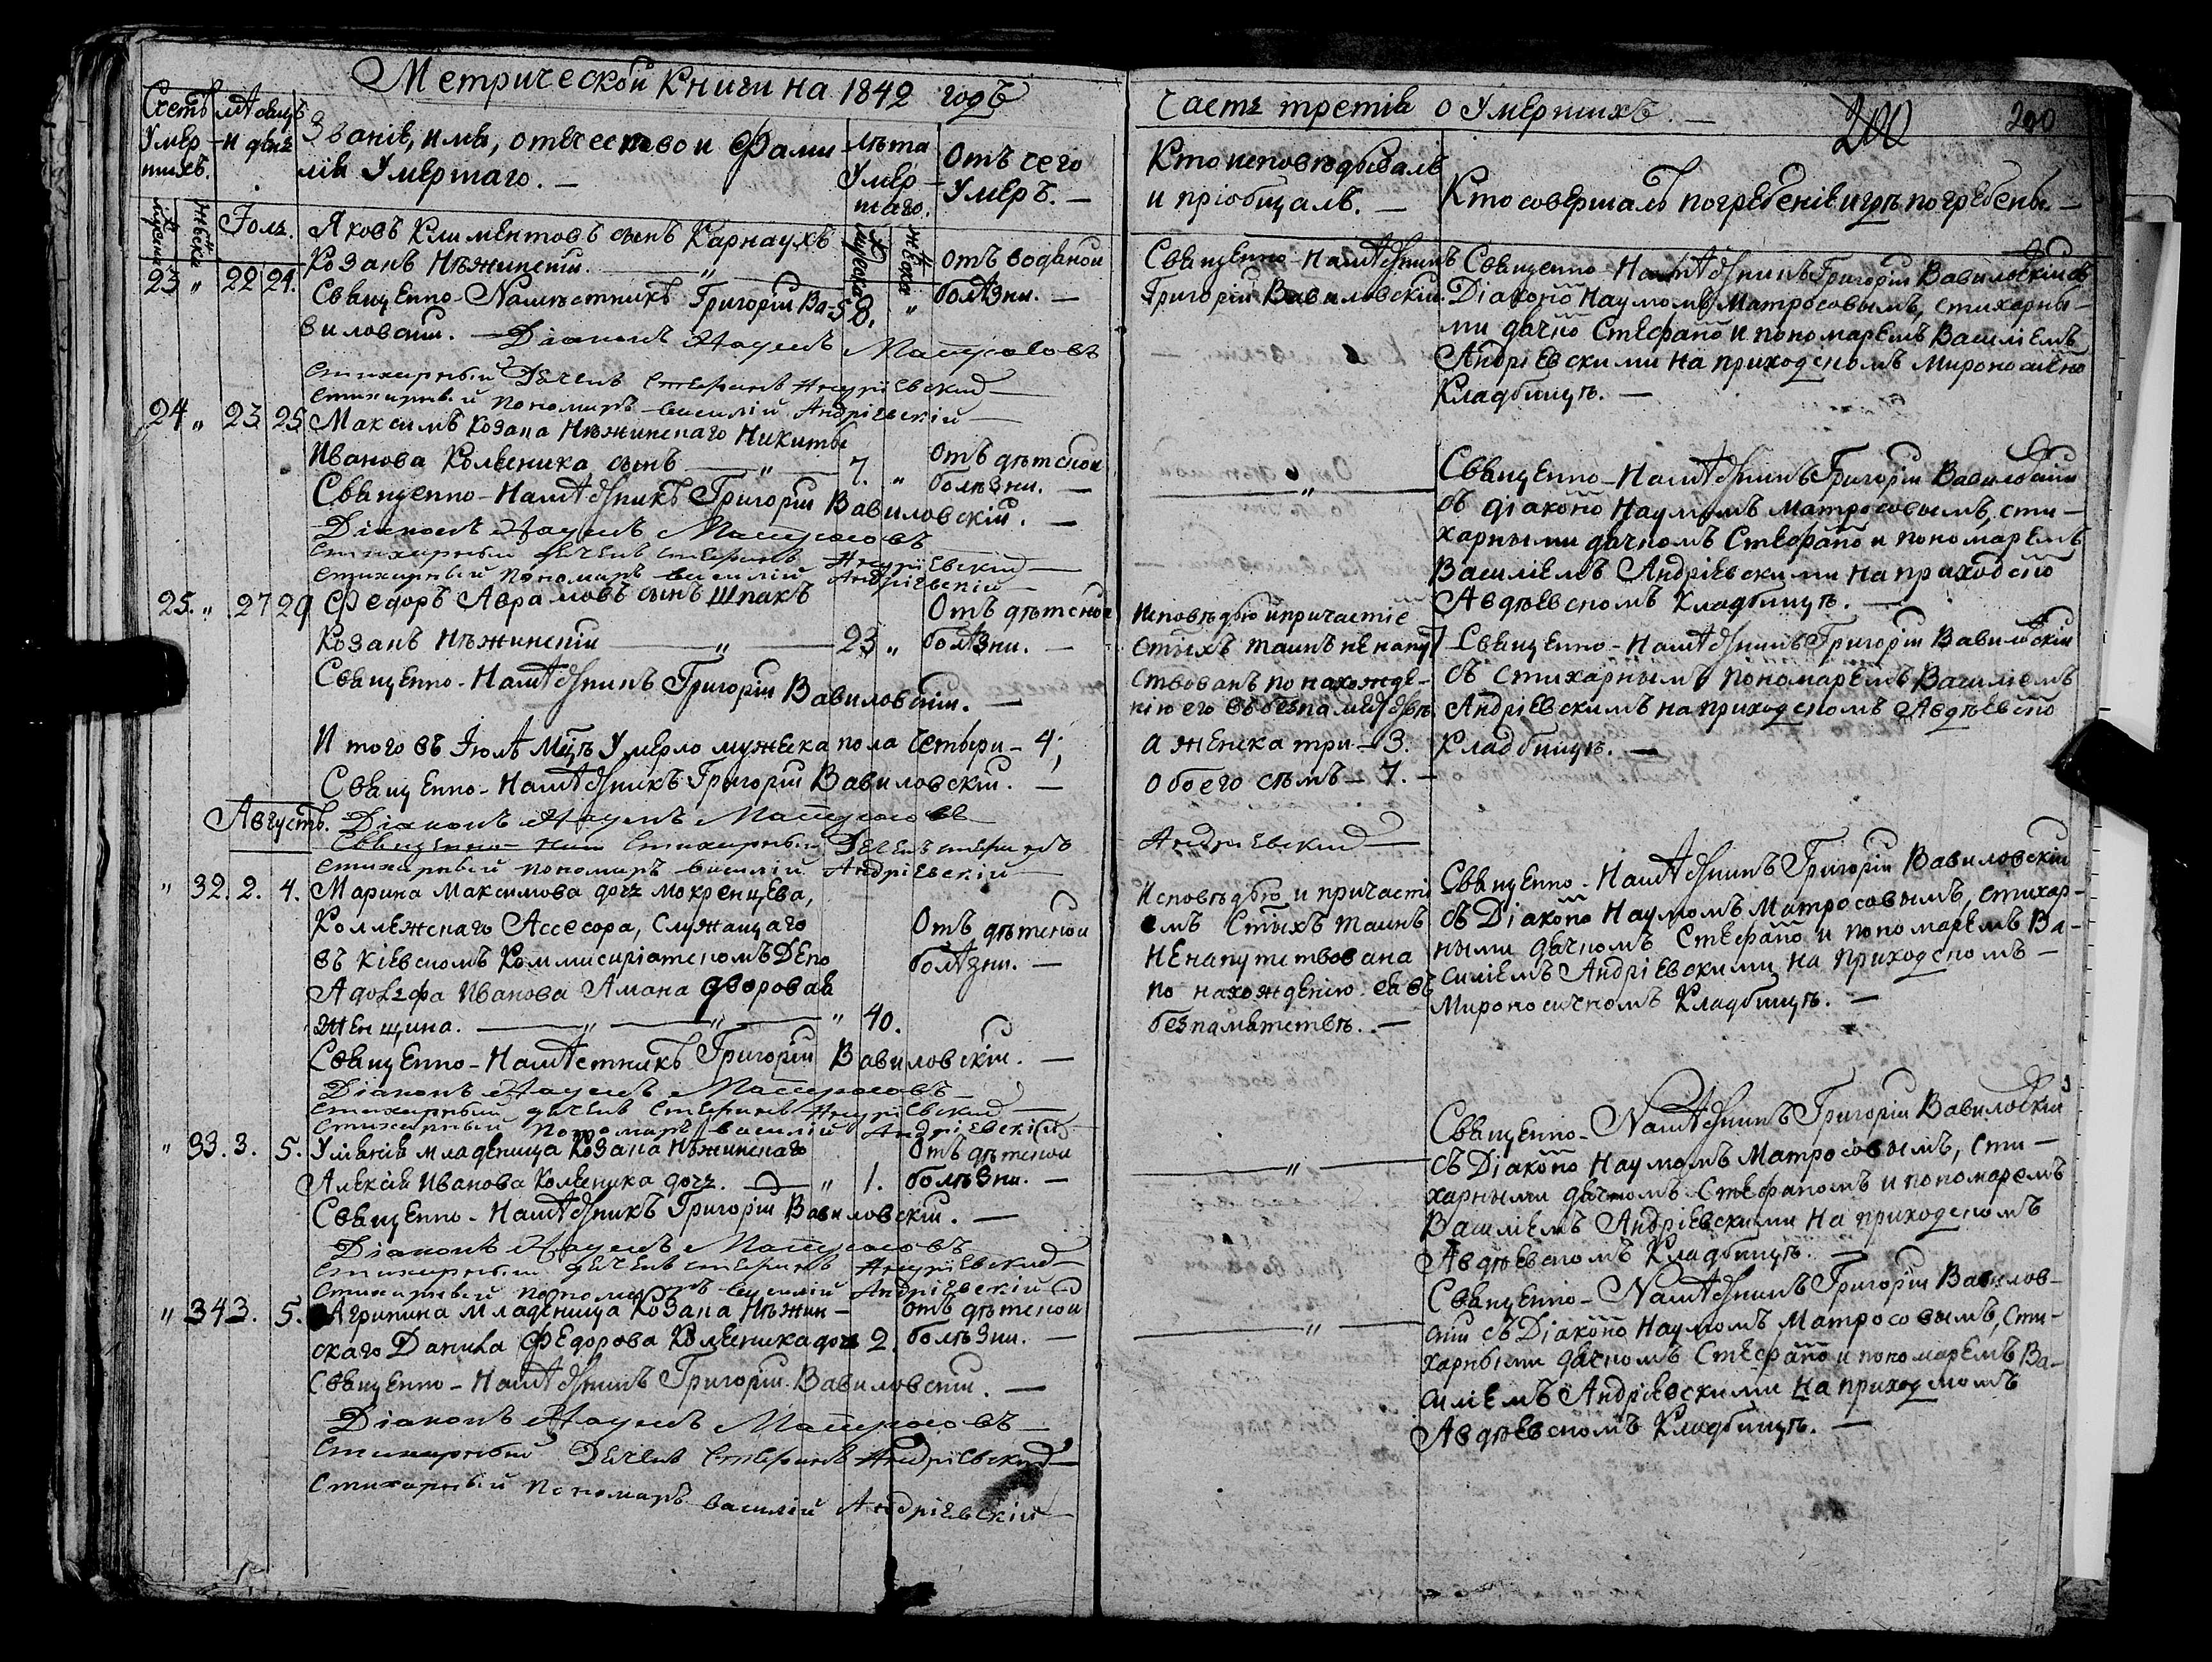 Метрической Книги на 1842 годъ
Счетъ Умер-шихъ.
мѣсяцъ и день
Званіе, имя, отечество и Фами-
лія Умершаго. —
лѣта
Умер-
шаго.
Отъ чего
Умеръ. —
мужеска
женска
Іюль.
мужеска
женска
Яковъ Климентовъ сынъ Карнаухъ
23 „ 22 24. Козакъ Нѣжинскій. — „ — 58. „ отъ водяной
болѣзни. —
Священно-Намѣстникъ Григорій Ва-
виловскій. — Діаконъ Наумъ Матросовъ
Стихарный Дячекъ Стефанъ Андріевскій —
Стихарный пономарь Василій Андріевскій —
24 „ 23 25 Максимъ Козака Нѣжинскаго Никиты
Иванова Колесника сынъ — „ — 7. „ Отъ дѣтской
болѣзни. —
Священно-Намѣстникъ Григорій Вавиловскій. —
Діаконъ Наумъ Матросовъ
Стихарный дячекъ Стефанъ Андріевскій —
Стихарный пономарь Василій Андріевскій —
25. „ 27 29 Федоръ Аврамовъ сынъ Шпакъ Отъ дѣтской
Козакъ Нѣжинскій — „ — 23 „ болѣзни. —
Священно-Намѣстникъ Григорій Вавиловскій. —
И того въ Іюлѣ Мцѣ Умерло мужеска пола четыри — 4;
Священно-Намѣстникъ Григорій Вавиловскій. —
Августъ. Діаконъ Наумъ Матросовъ
Священно-Нам Стихарный Дячекъ Стефанъ
Стихарный пономарь Василій Андріевскій —
„ 32. 2. 4. Марина Максимова дочь Мокренцева,
Коллежскаго Ассесора, Служащаго Отъ дѣтской
въ Кіевскомъ Коммисаріатскомъ Депо болѣзни. —
Адольфа Иванова Амана дворовая
женщина. — „ — „ — „ 40.
Священно-Намѣстникъ Григорій Вавиловскій. —
Діаконъ Наумъ Матросовъ —
Стихарный дячекъ Стефанъ Андріевскій —
Стихарный пономарь Василій Андріевскій
„ 33. 3. 5. Уліянія младеница Козака Нѣжинскаго Отъ дѣтской
Алексія Иванова Колесника дочь. — „ 1. болѣзни. —
Священно-Намѣстникъ Григорій Вавиловскій. —
Діаконъ Наумъ Матросовъ
Стихарный дячекъ Стефанъ Андріевскій —
Стихарный пономарь Василій Андріевскій
„ 34 3. 5. Агрипина младеница Козака Нѣжин- отъ дѣтской
скаго Данила Федорова Колесника дочь 2. болѣзни. —
Священно-Намѣстникъ Григорій Вавиловскій. —
Діаконъ Наумъ Матросовъ —
Стихарный Дячекъ Стефанъ Андріевскій
Стихарный пономарь Василій Андріевскій —
Часть третія о Умершихъ. —
200 200
Кто исповѣдывалъ
и пріобщалъ. —
Кто совершалъ погребеніе и гдѣ погребены. —
Священно-Намѣстникъ
Григорій Вавиловскій.
Священно-Намѣстникъ Григорій Вавиловскій съ
Діакономъ Наумомъ Матросовымъ, стихарны-
ми дячко Стефано и пономаремъ Василіемъ
Андріевскими на приходскомъ Мироносично
Кладбищѣ. —
— „ —
Священно-Намѣстникъ Григорій Вавиловскій
съ діаконо Наумомъ Матросовымъ, сти-
харными дячкомъ Стефано и пономаремъ
Василіемъ Андріевскими на приходско
Авдѣевскомъ Кладбищѣ. —
Исповѣдью и причастіе
Стыхъ таинъ не напут-
ствованъ по нахожде-
нію его въ безпамятствѣ.
Священно-Намѣстникъ Григорій Вавиловскій
съ Стихарнымъ пономаремъ Василіемъ
Андріевскимъ на приходскомъ Авдѣевско
Кладбищѣ. —
а женска три — 3.
Обоего сѣмъ — 7. —
Андріевскій —
Исповѣдью и причасті
емъ Стыхъ таинъ
не напутствована
по нахожденію ея въ
безпамятствѣ. —
Священно-Намѣстникъ Григорій Вавиловскій
съ Діаконо Наумомъ Матросовымъ, стихар-
ными дячкомъ Стефано и пономаремъ Ва-
силіемъ Андріевскими на приходскомъ —
Мироносичномъ Кладбищѣ. —
— „ —
Священно-Намѣстникъ Григорій Вавиловскій
съ Діаконо Наумомъ Матросовымъ, сти-
харными дячкомъ Стефаномъ и пономаремъ
Василіемъ Андріевскими на приходскомъ
Авдѣевскомъ Кладбищѣ. —
— „ —
Священно-Намѣстникъ Григорій Вавилов-
скій съ Діаконо Наумомъ Матросовымъ, сти-
харными дячкомъ Стефано и пономаремъ Ва-
силіемъ Андріевскими на приходскомъ
Авдѣевскомъ Кладбищѣ. —